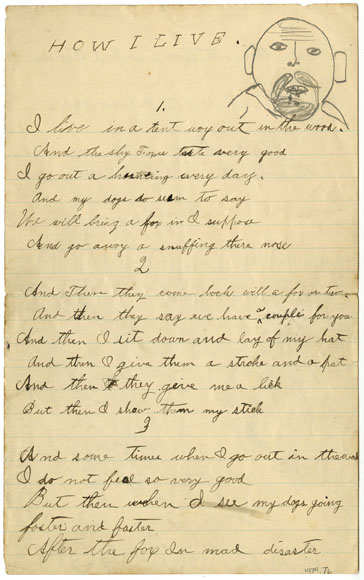 HOW I LIVE.
1.
I live in a tent way out in the wood.
And the sky Fowe taste very good
I go out a hunting every day.
And my dogs do seem to say
We will bring a fox in I suppose
And go away a snuffing there nose
2
And Then they come back with a fox or two
And then they say we have a couple for you
And then I sit down and lay of my hat
And then I give them a stroke and a pat
And then they give me a lick
But then I show them my stick
3
And some times when I go out in the
I do not feel so very good
But then when I see my dogs going
faster and faster
After the fox In mad disaster